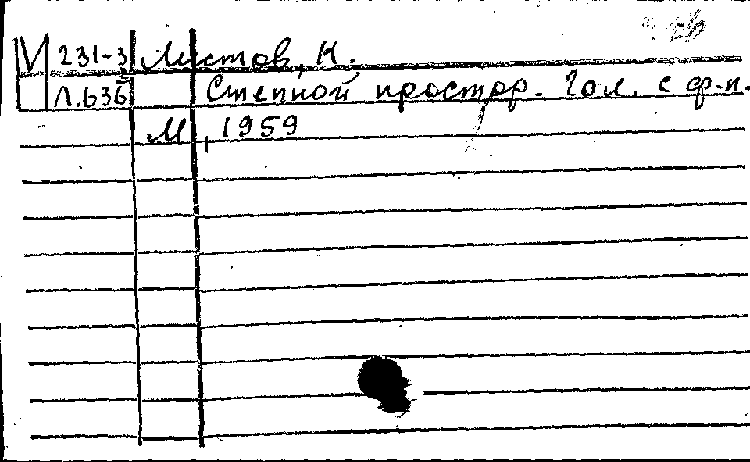 V 231-3 Листов, К.
Л.636 Степной простор. Гол. с ф-п.
М, 1959